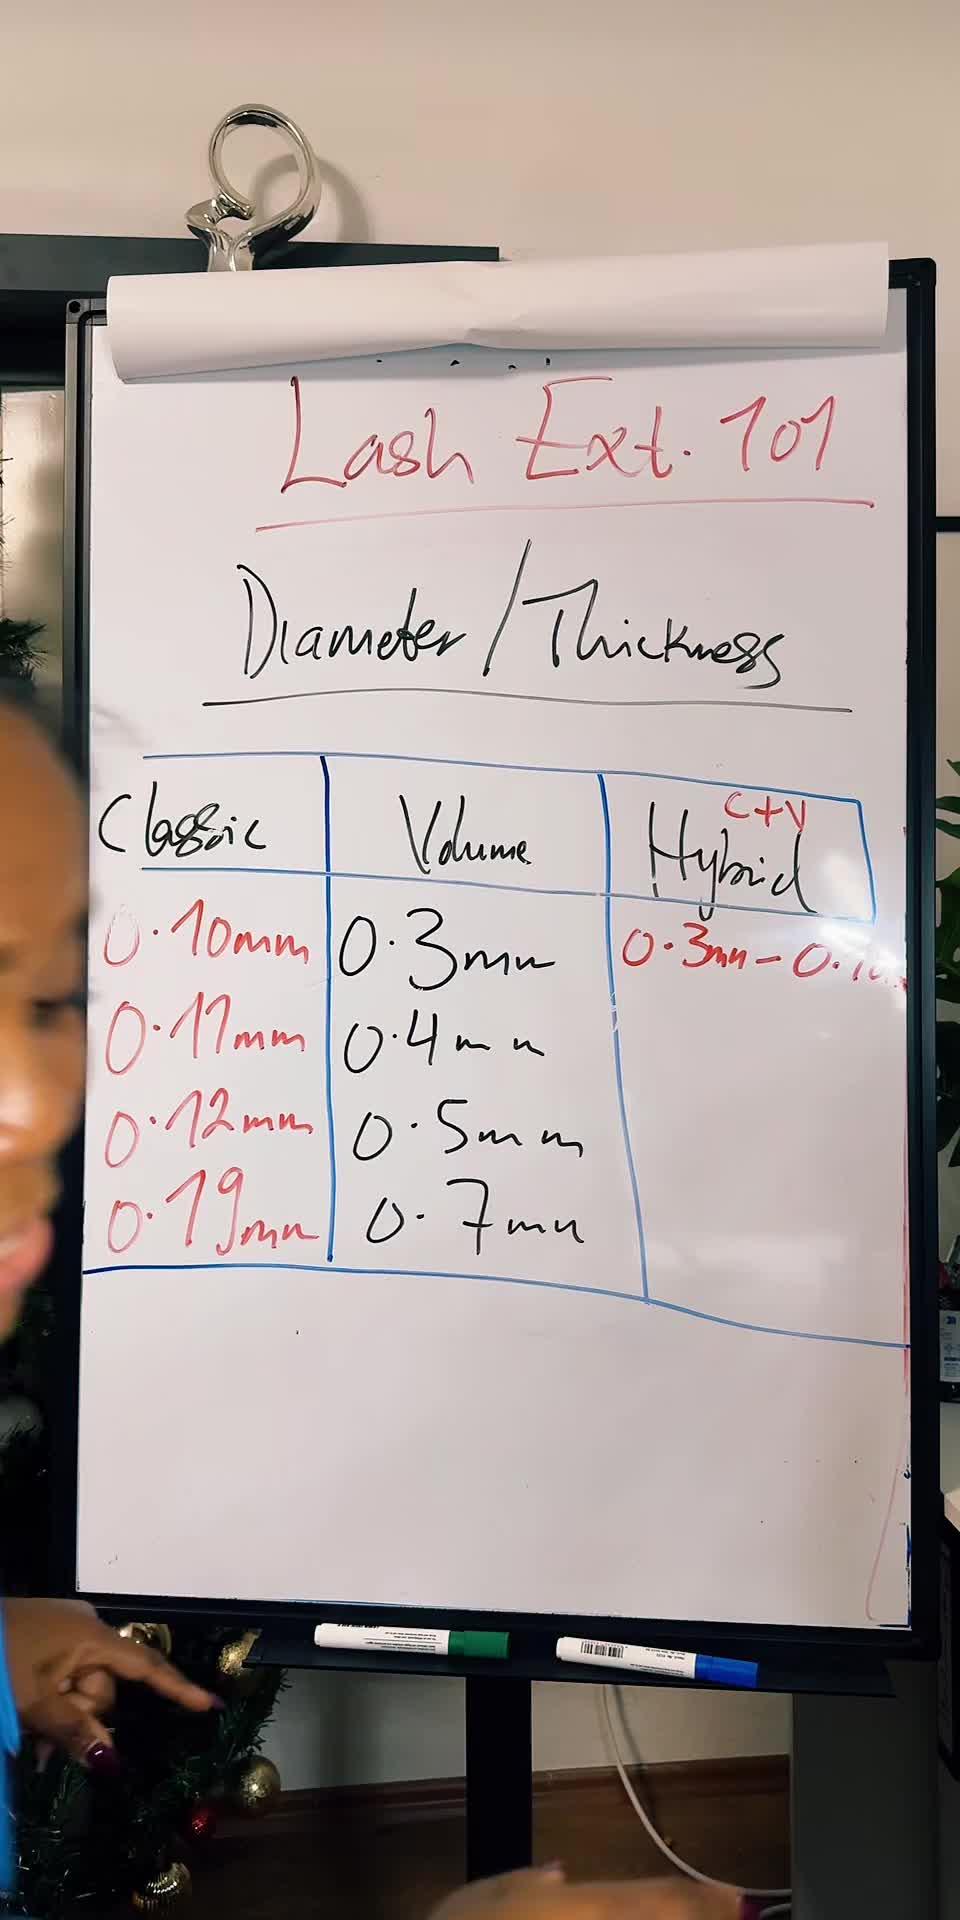 Lash Ext. 101
Diameter/Thickness
Classic Volume C+V Hybrid
0.10mm 0.3mm 0.3mm - 0.10
0.11mm 0.4mm
0.12mm 0.5mm
0.19mm 0.7mm